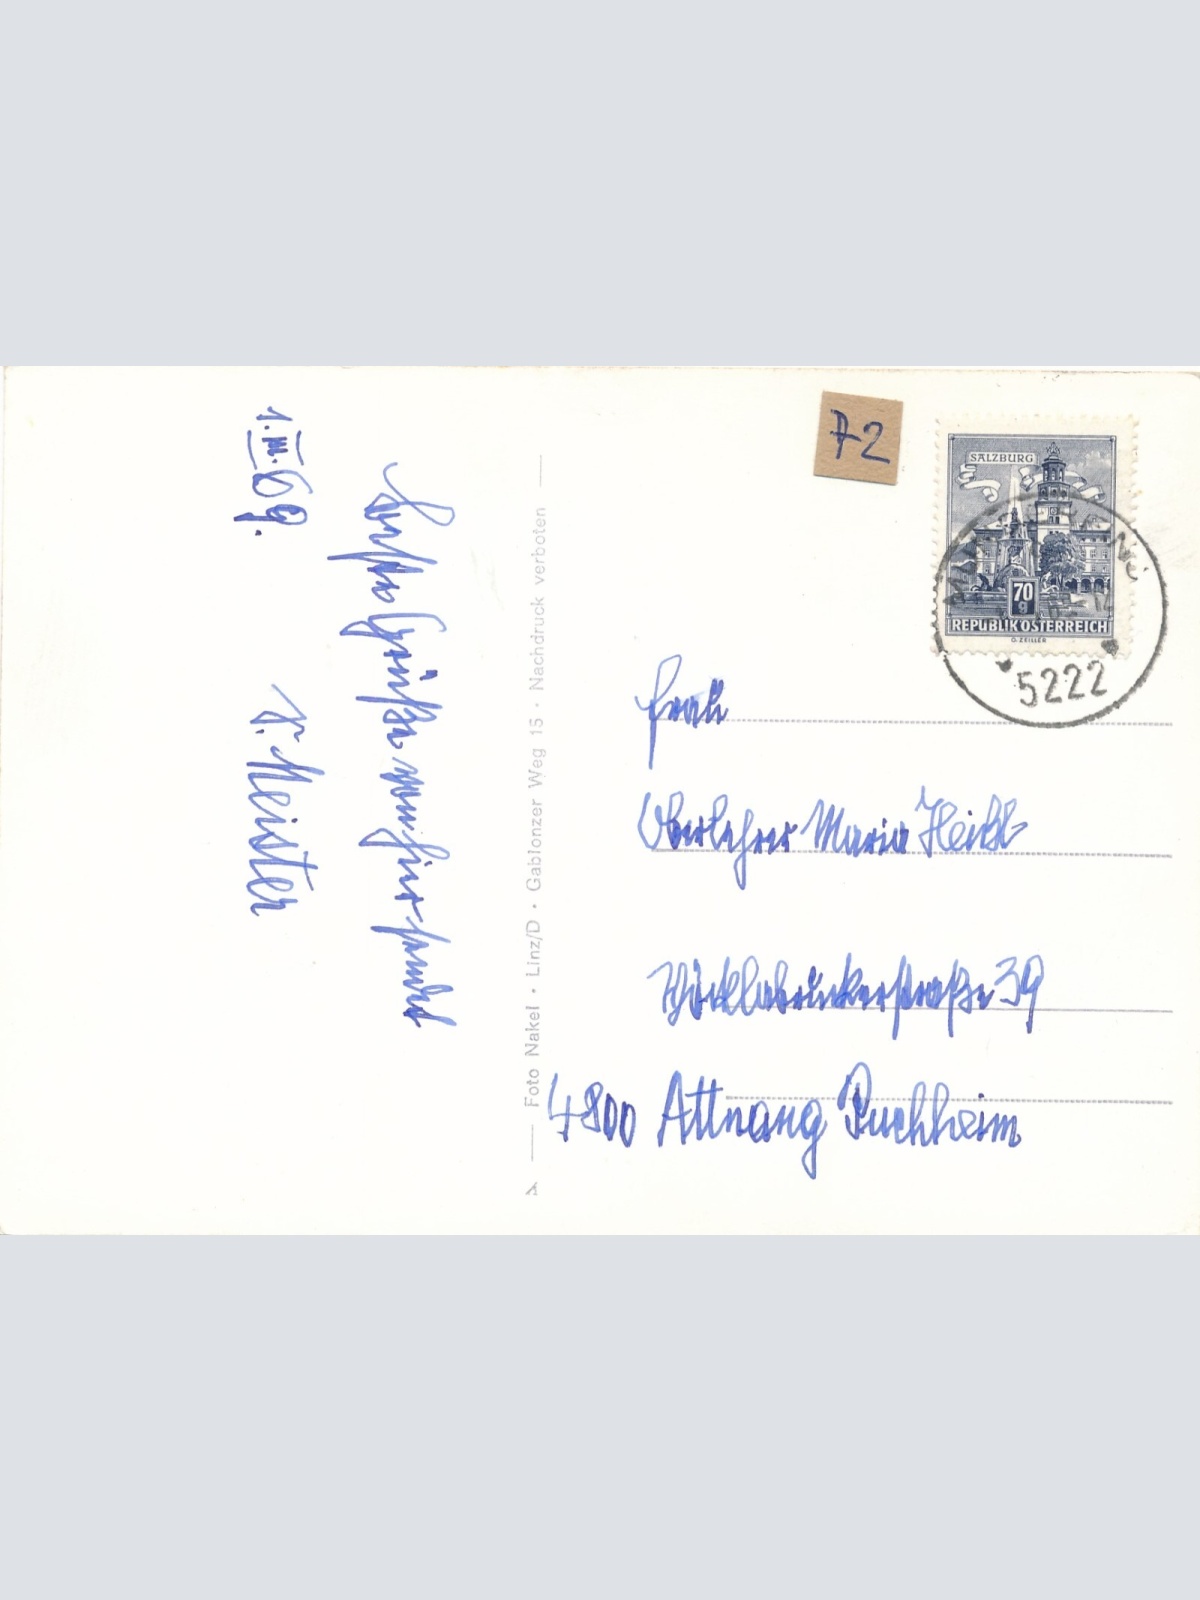 1.III.69.
Beste Grüße von hier sendet
K. Meister
Foto Nakel · Linz/D · Gablonzer Weg 15 · Nachdruck verboten
72
SALZBURG
70
g
REPUBLIK ÖSTERREICH
O. ZEILLER
5222
Frau
Oberlehrer Maria Heißl
Vöcklabruckerstraße 39
4800 Attnang Puchheim